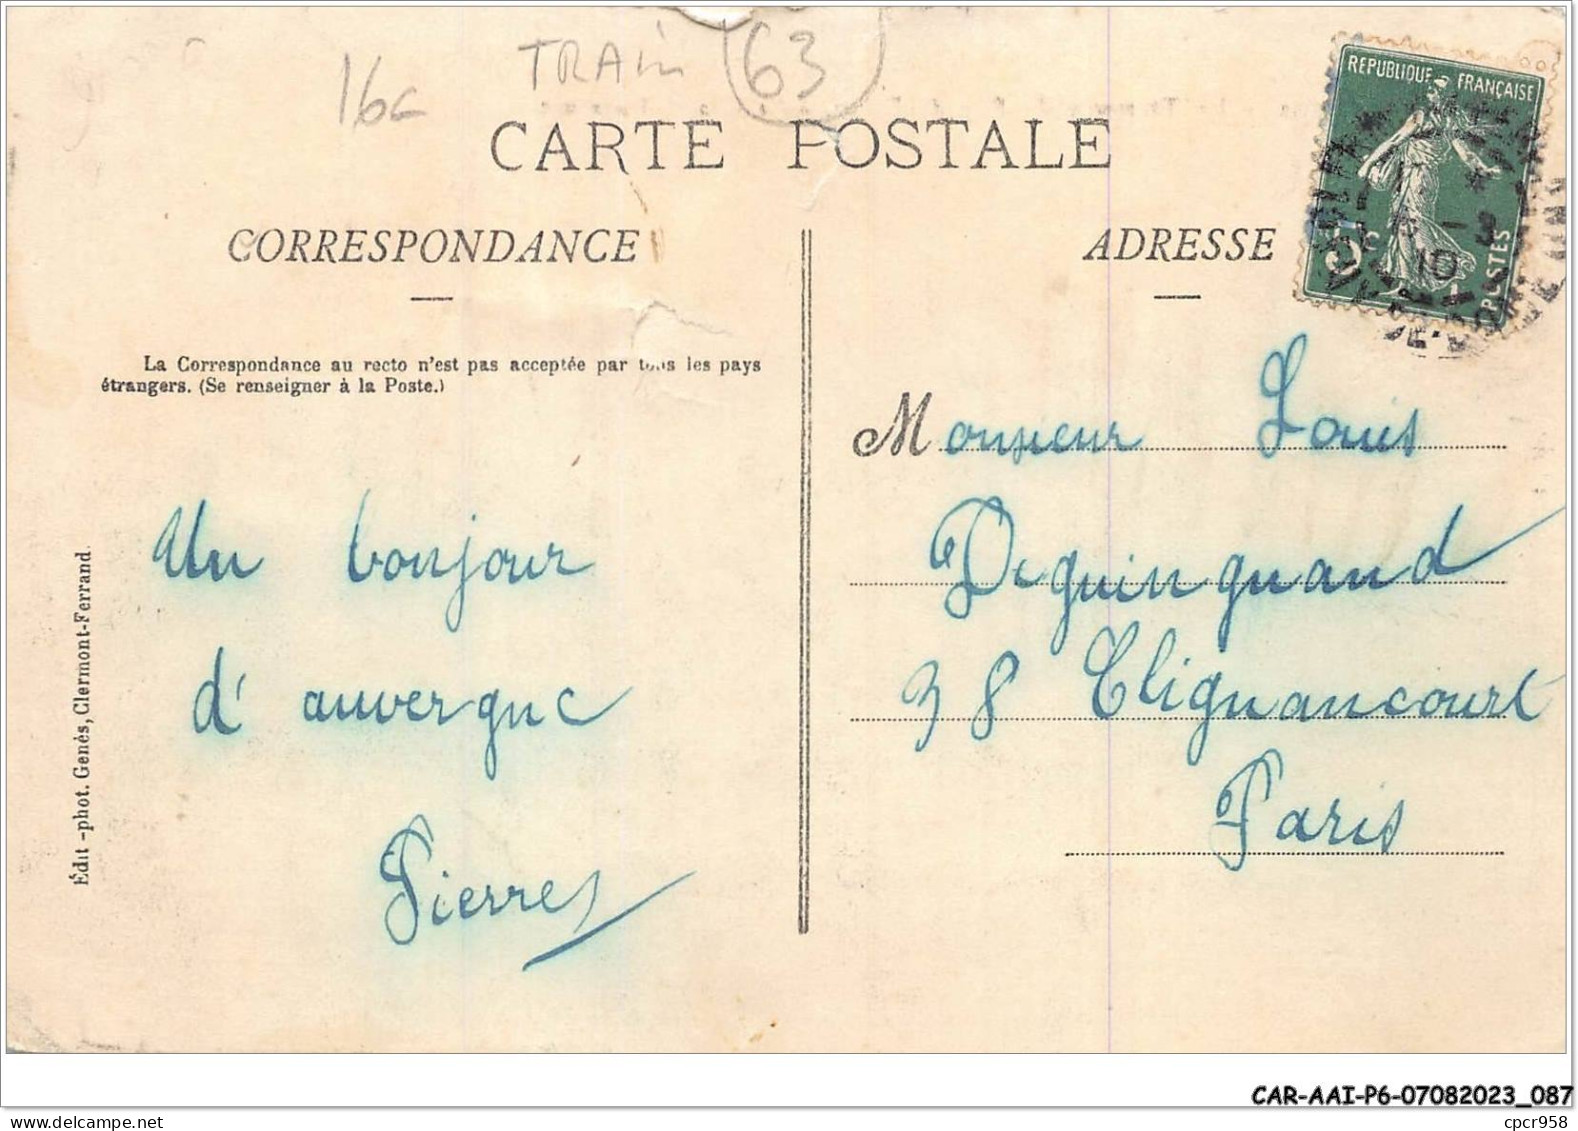 16c
TRAIN
63
CARTE POSTALE
REPUBLIQUE FRANÇAISE
5c
POSTES
10
CORRESPONDANCE
ADRESSE
La Correspondance au recto n'est pas acceptée par tous les pays
étrangers. (Se renseigner à la Poste.)
Un bonjour
d'auvergne
Pierres
Monsieur Louis
Deguinguand
38 Clignancourt
Paris
Édit-phot. Genés, Clermont-Ferrand.
CAR-AAI-P6-07082023_087
cpcr958